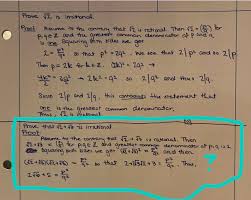 Prove √2 is irrational.
Proof Assume to the contrary that √2 is rational. Then √2 = (p/q) for
p,q ∈ Z and the greatest common denominator of p and q
is one. Squaring both sides we get
2 = p²/q² so that 2q² = p². We see that 2 | p² and so 2 | p
Then p = 2k for k ∈ Z. (2k)² = 2q² →
4k² = 2q² → 2k² = q² so 2 | q² and thus 2 | q.
Since 2 | p and 2 | q, this contradicts the statement that
one is the greatest common denominator.
Thus, √2 is irrational.
Prove that √2 + √3 is irrational
Proof:
Assume to the contrary that √2 + √3 is rational. Then
√2 + √3 = p/q for p,q ∈ Z and greatest common denominator of p,q is 1
Squaring both sides we get (√2 + √3)² = p²/q² and then
(√2+√3)(√2+√3) = p²/q² so that 2 + 2√2√3 + 3 = p²/q². Thus,
2√6 + 5 = p²/q²
?